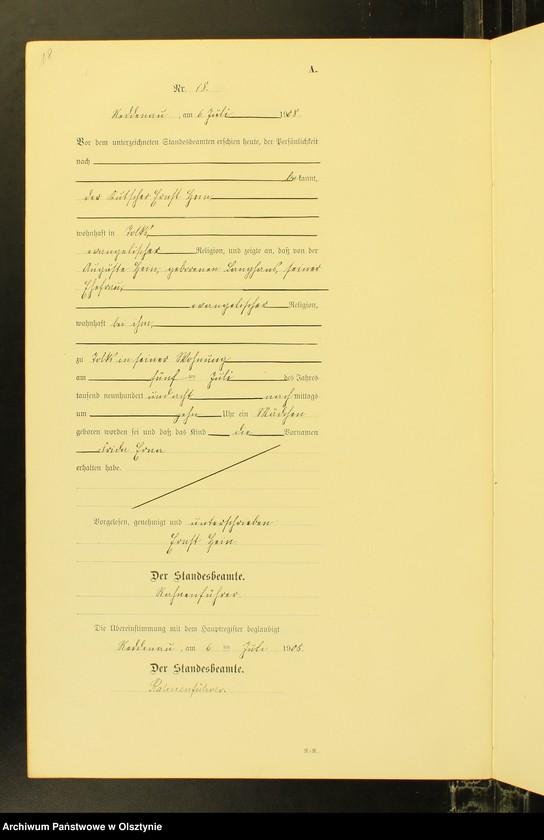 18
A.
Nr. 18.
Reddenau, am 6. Juli 1908.
Vor dem unterzeichneten Standesbeamten erschien heute, der Persönlichkeit
nach
bekannt,
der Kutscher Ernst Hein
wohnhaft in Tolks,
evangelischer Religion, und zeigte an, daß von der
Auguste Hein, geborenen Langhans, seiner
Ehefrau,
evangelischer Religion,
wohnhaft bei ihm,
zu Tolks in seiner Wohnung
am fünften Juli des Jahres
tausend neunhundert und acht nachmittags
um zehn Uhr ein Mädchen
geboren worden sei und daß das Kind die Vornamen
Frida Erna
erhalten habe.
Vorgelesen, genehmigt und unterschrieben
Ernst Hein.
Der Standesbeamte.
Die Übereinstimmung mit dem Hauptregister beglaubigt
Reddenau, am 6ten Juli 1908.
Der Standesbeamte.
Archiwum Państwowe w Olsztynie